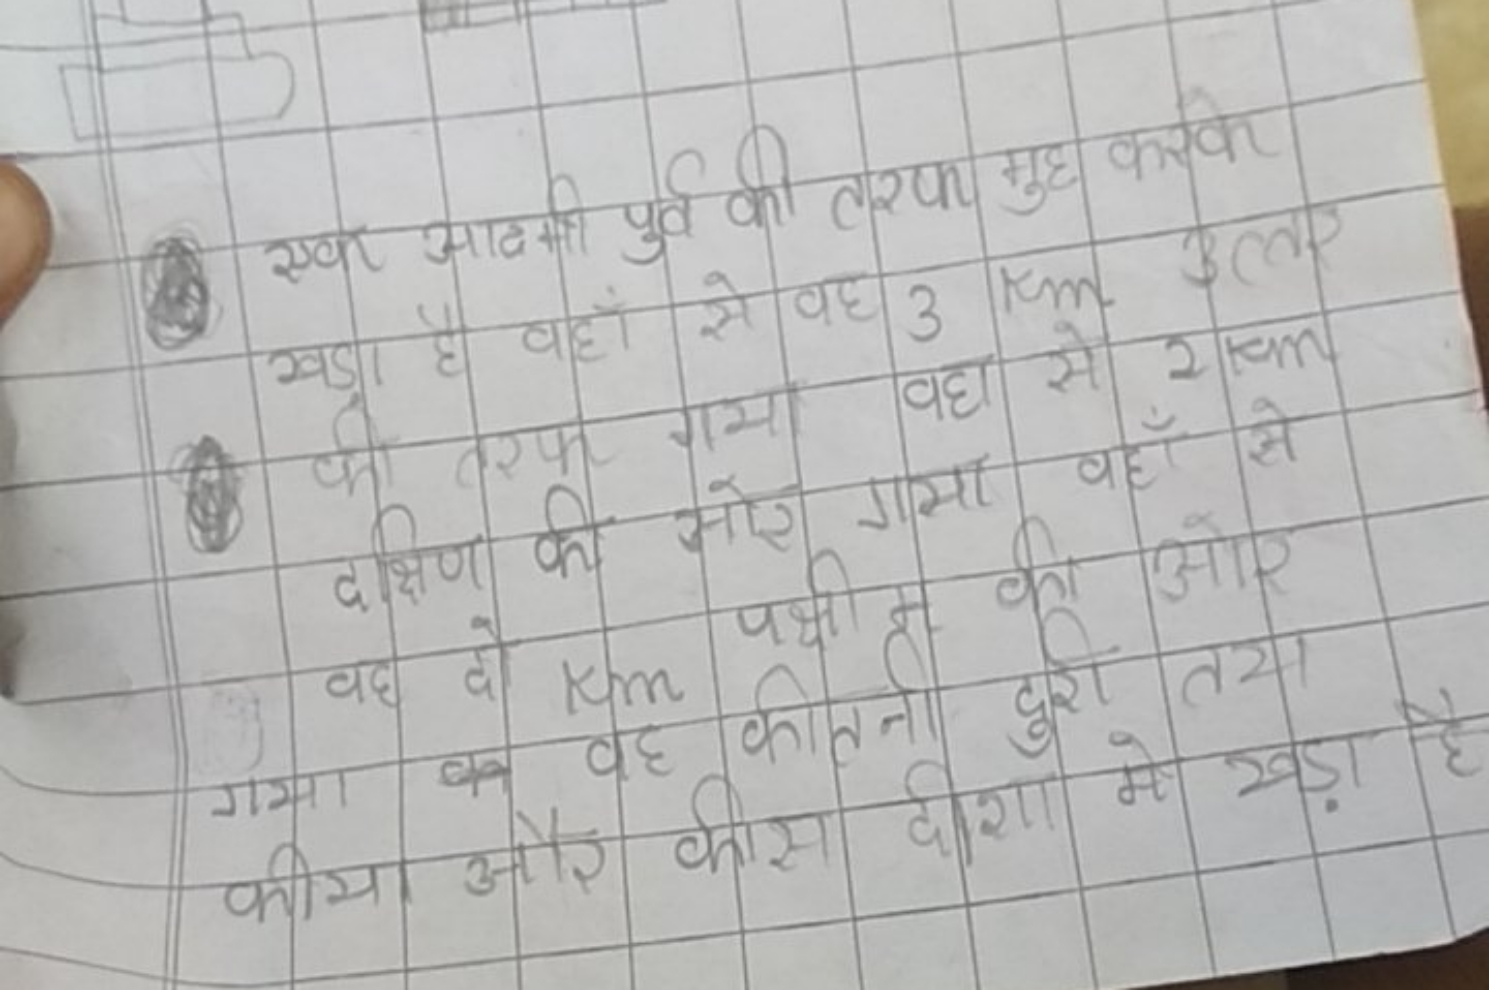 एक आदमी पुर्व की तरफ मुह करके
खड़ा है वहाँ से वह 3 Km उत्तर
की तरफ गया वहा से 2 Km
दक्षिण की ओर गया वहाँ से
वह दो Km पश्चीम की ओर
गया वह कीतनी दुरी तया
कीया और कीस दीशा मे खड़ा है